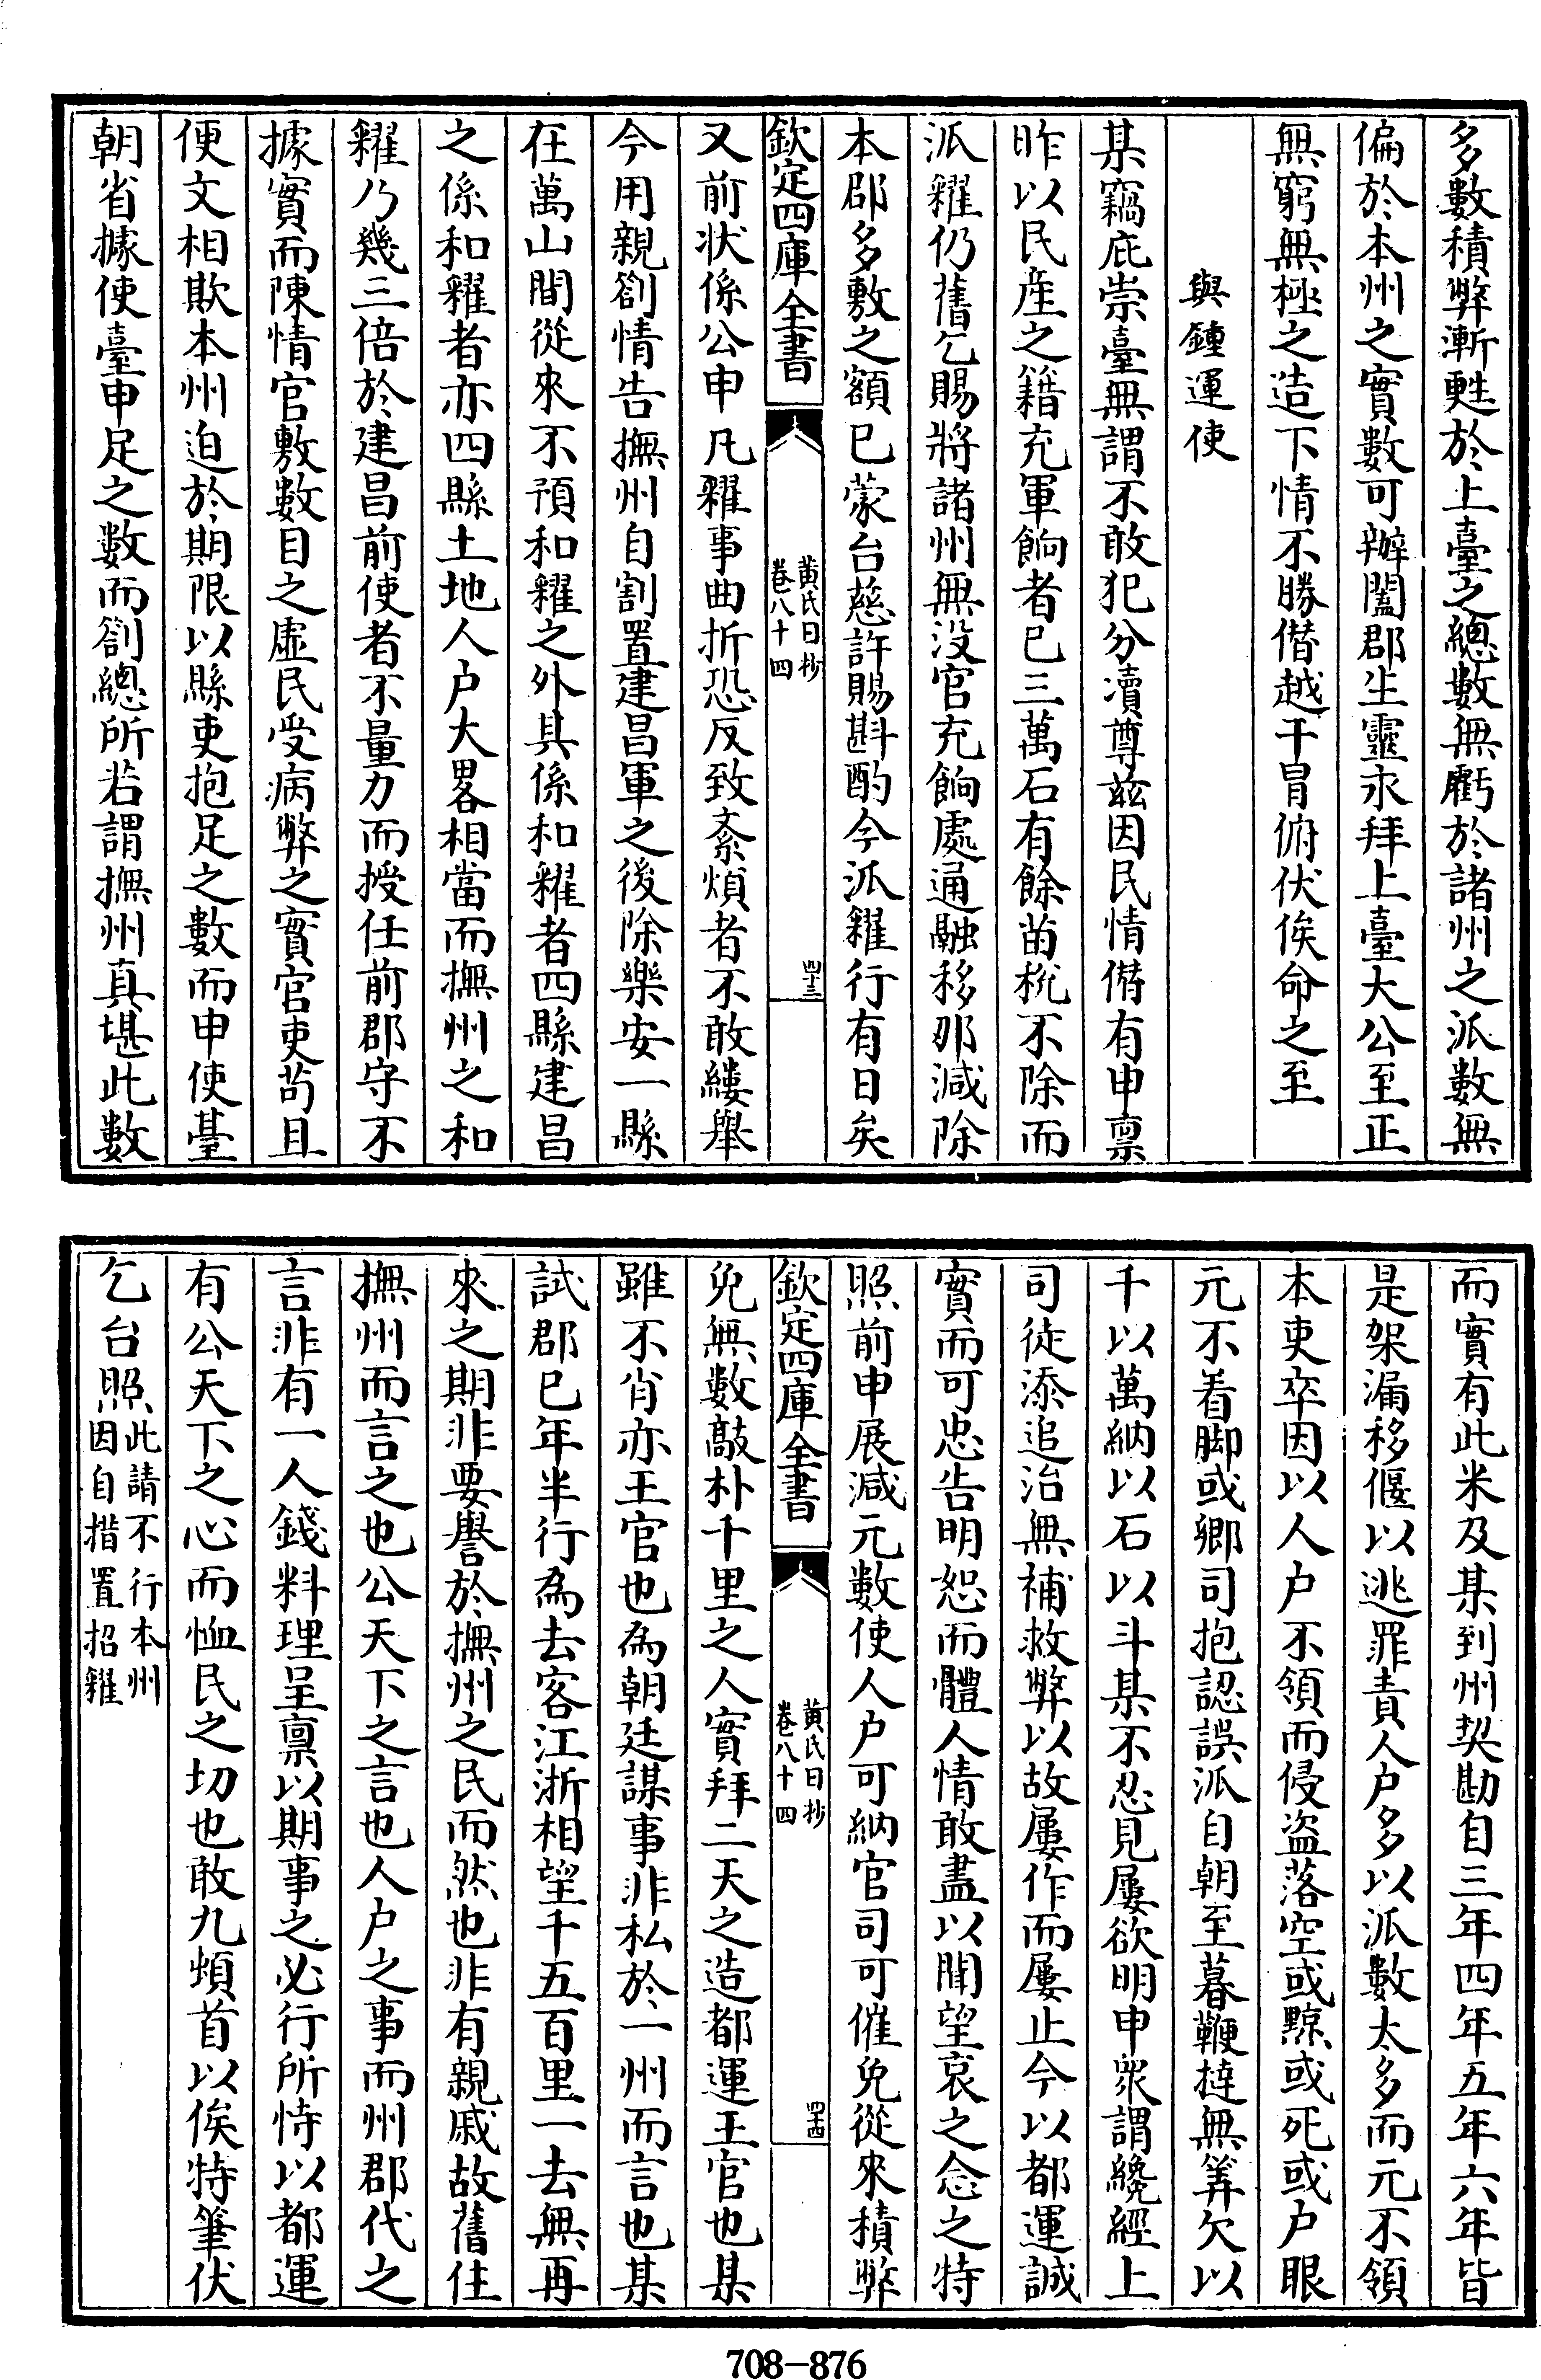 多數積弊漸甦於上臺之總數無虧於諸州之派數無
偏於本州之實數可辦闔郡生靈永拜上臺大公至正
無窮無極之造下情不勝僭越干冒俯伏俟命之至
與鍾運使
某竊庇崇臺無謂不敢犯分凟尊兹因民情僭有申稟
昨以民産之籍充軍餉者已三萬石有餘苗稅不除而
派糴仍舊乞賜將諸州無没官充餉處通融移那減除
本郡多敷之額已蒙台慈許賜斟酌今派糴行有日矣
欽定四庫全書
黄氏日抄
卷八十四
四十三
又前狀係公申凡糴事曲折恐反致紊煩者不敢縷舉
今用親劄情告撫州自割置建昌軍之後除樂安一縣
在萬山間從來不預和糴之外具係和糴者四縣建昌
之係和糴者亦四縣土地人户大畧相當而撫州之和
糴乃幾三倍於建昌前使者不量力而授任前郡守不
據實而陳情官敷數目之虛民受病弊之實官吏苟且
便文相欺本州迫於期限以縣吏抱足之數而申使臺
朝省據使臺申足之數而劄總所若謂撫州真堪此數
而實有此米及某到州契勘自三年四年五年六年皆
是架漏移偃以逃罪責人户多以派數太多而元不領
本吏卒因以人户不領而侵盗落空或黥或死或户眼
元不着脚或鄉司抱認誤派自朝至暮鞭撻無筭欠以
千以萬納以石以斗某不忍見屢欲明申衆謂纔經上
司徒添追治無補救弊以故屢作而屢止今以都運誠
實而可忠告明恕而體人情敢盡以聞望哀之念之特
照前申展減元數使人户可納官司可催免從來積弊
欽定四庫全書
黄氏日抄
卷八十四
四十四
免無數敲朴千里之人實拜二天之造都運王官也某
雖不肖亦王官也為朝廷謀事非私於一州而言也某
試郡已年半行為去客江浙相望千五百里一去無再
來之期非要譽於撫州之民而然也非有親戚故舊住
撫州而言之也公天下之言也人户之事而州郡代之
言非有一人錢料理呈稟以期事之必行所恃以都運
有公天下之心而恤民之切也敢九頓首以俟特筆伏
乞台照此請不行本州
因自措置招糴
708-876